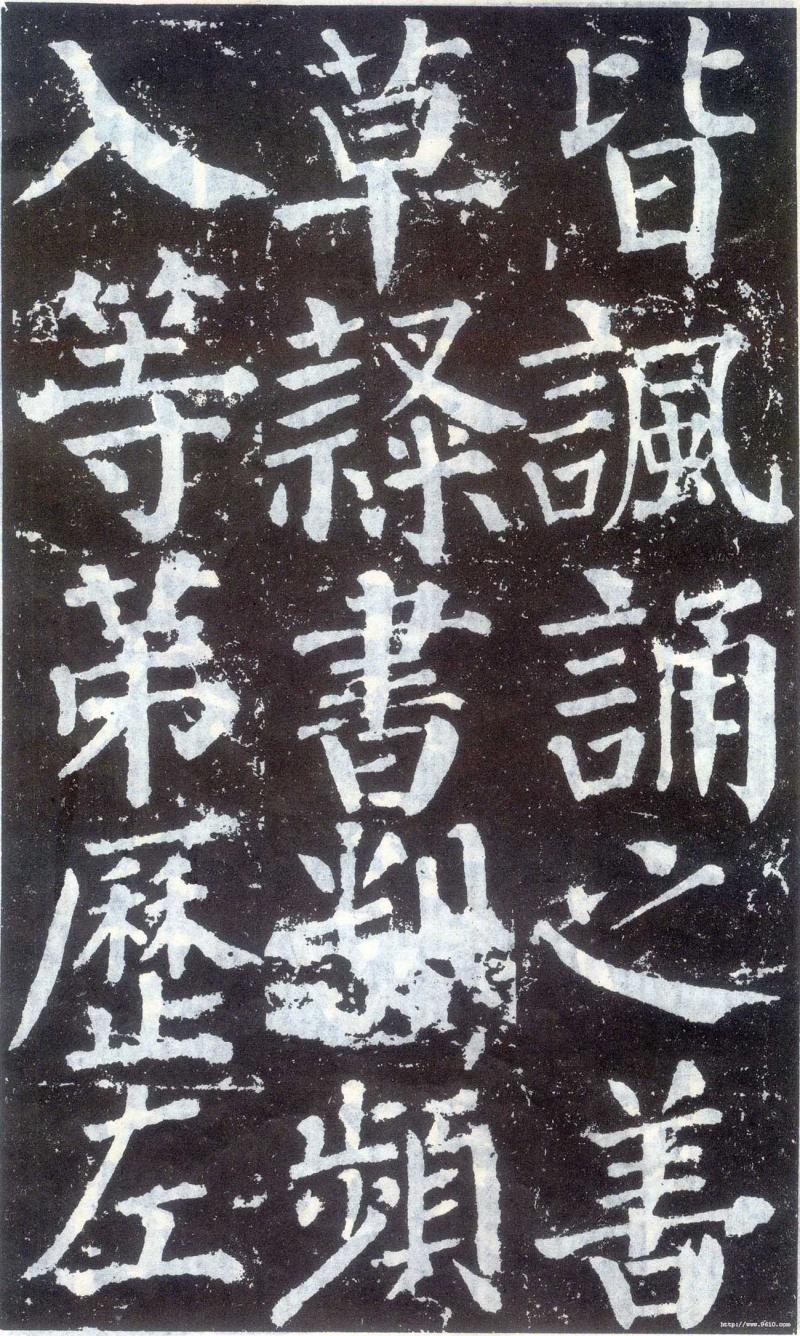 皆諷誦之善
草隷書判頻
入等第歷左
http://www.9610.com